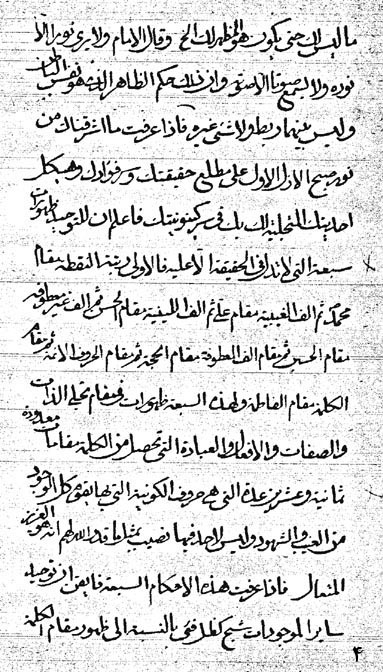 ما ليس لك حتى يكون هو المظهر لك الخ وقال الامام ولا يرى نورا الا
نوره ولا يسمع صوتا الا صوته وان ذلك حكم الظاهر الذي هو نفس الباطن
وليس بينهما ربط ولا شيء غيره فاذا عرفت ما اشرقناك من
نور صبح الازل الاول على مطلع حقيقتك وسر فؤادك وهيكل
احديتك المتجلية لك بك في سر كينونيتك فاعلم ان للتوحيد ظهورات
سبعة التي لا تدل في الحقيقة الا عليه فالاولى رتبة النقطة مقام
محمد ثم الف الغيبية مقام علي ثم الف اللينية مقام الحسن ثم الف غير معطوفه
مقام الحسين ثم مقام الف المعطوفة مقام الحجة ثم مقام الحروف الائمة ثم مقام
الكلمة مقام الفاطمة ولهذه السبعة ظهورات في مقام تجلي الذات
والصفات والافعال والعبادة التي تحصل من الكلمة مقامات معدودة
ثمانية وعشرين عدة التي هي حروف الكونية التي بها يقوم كل الوجود
من الغيب والشهود وليس لاحد فيها نصيب بمثل ما قدر الله لهم انه هو العزيز
المتعال فاذا عرفت هذه الاحكام السبعة فايقن ان توحيد
ساير الموجودات شبح كظل فئ بالنسبة الى ظهور مقام الكلمة
۴